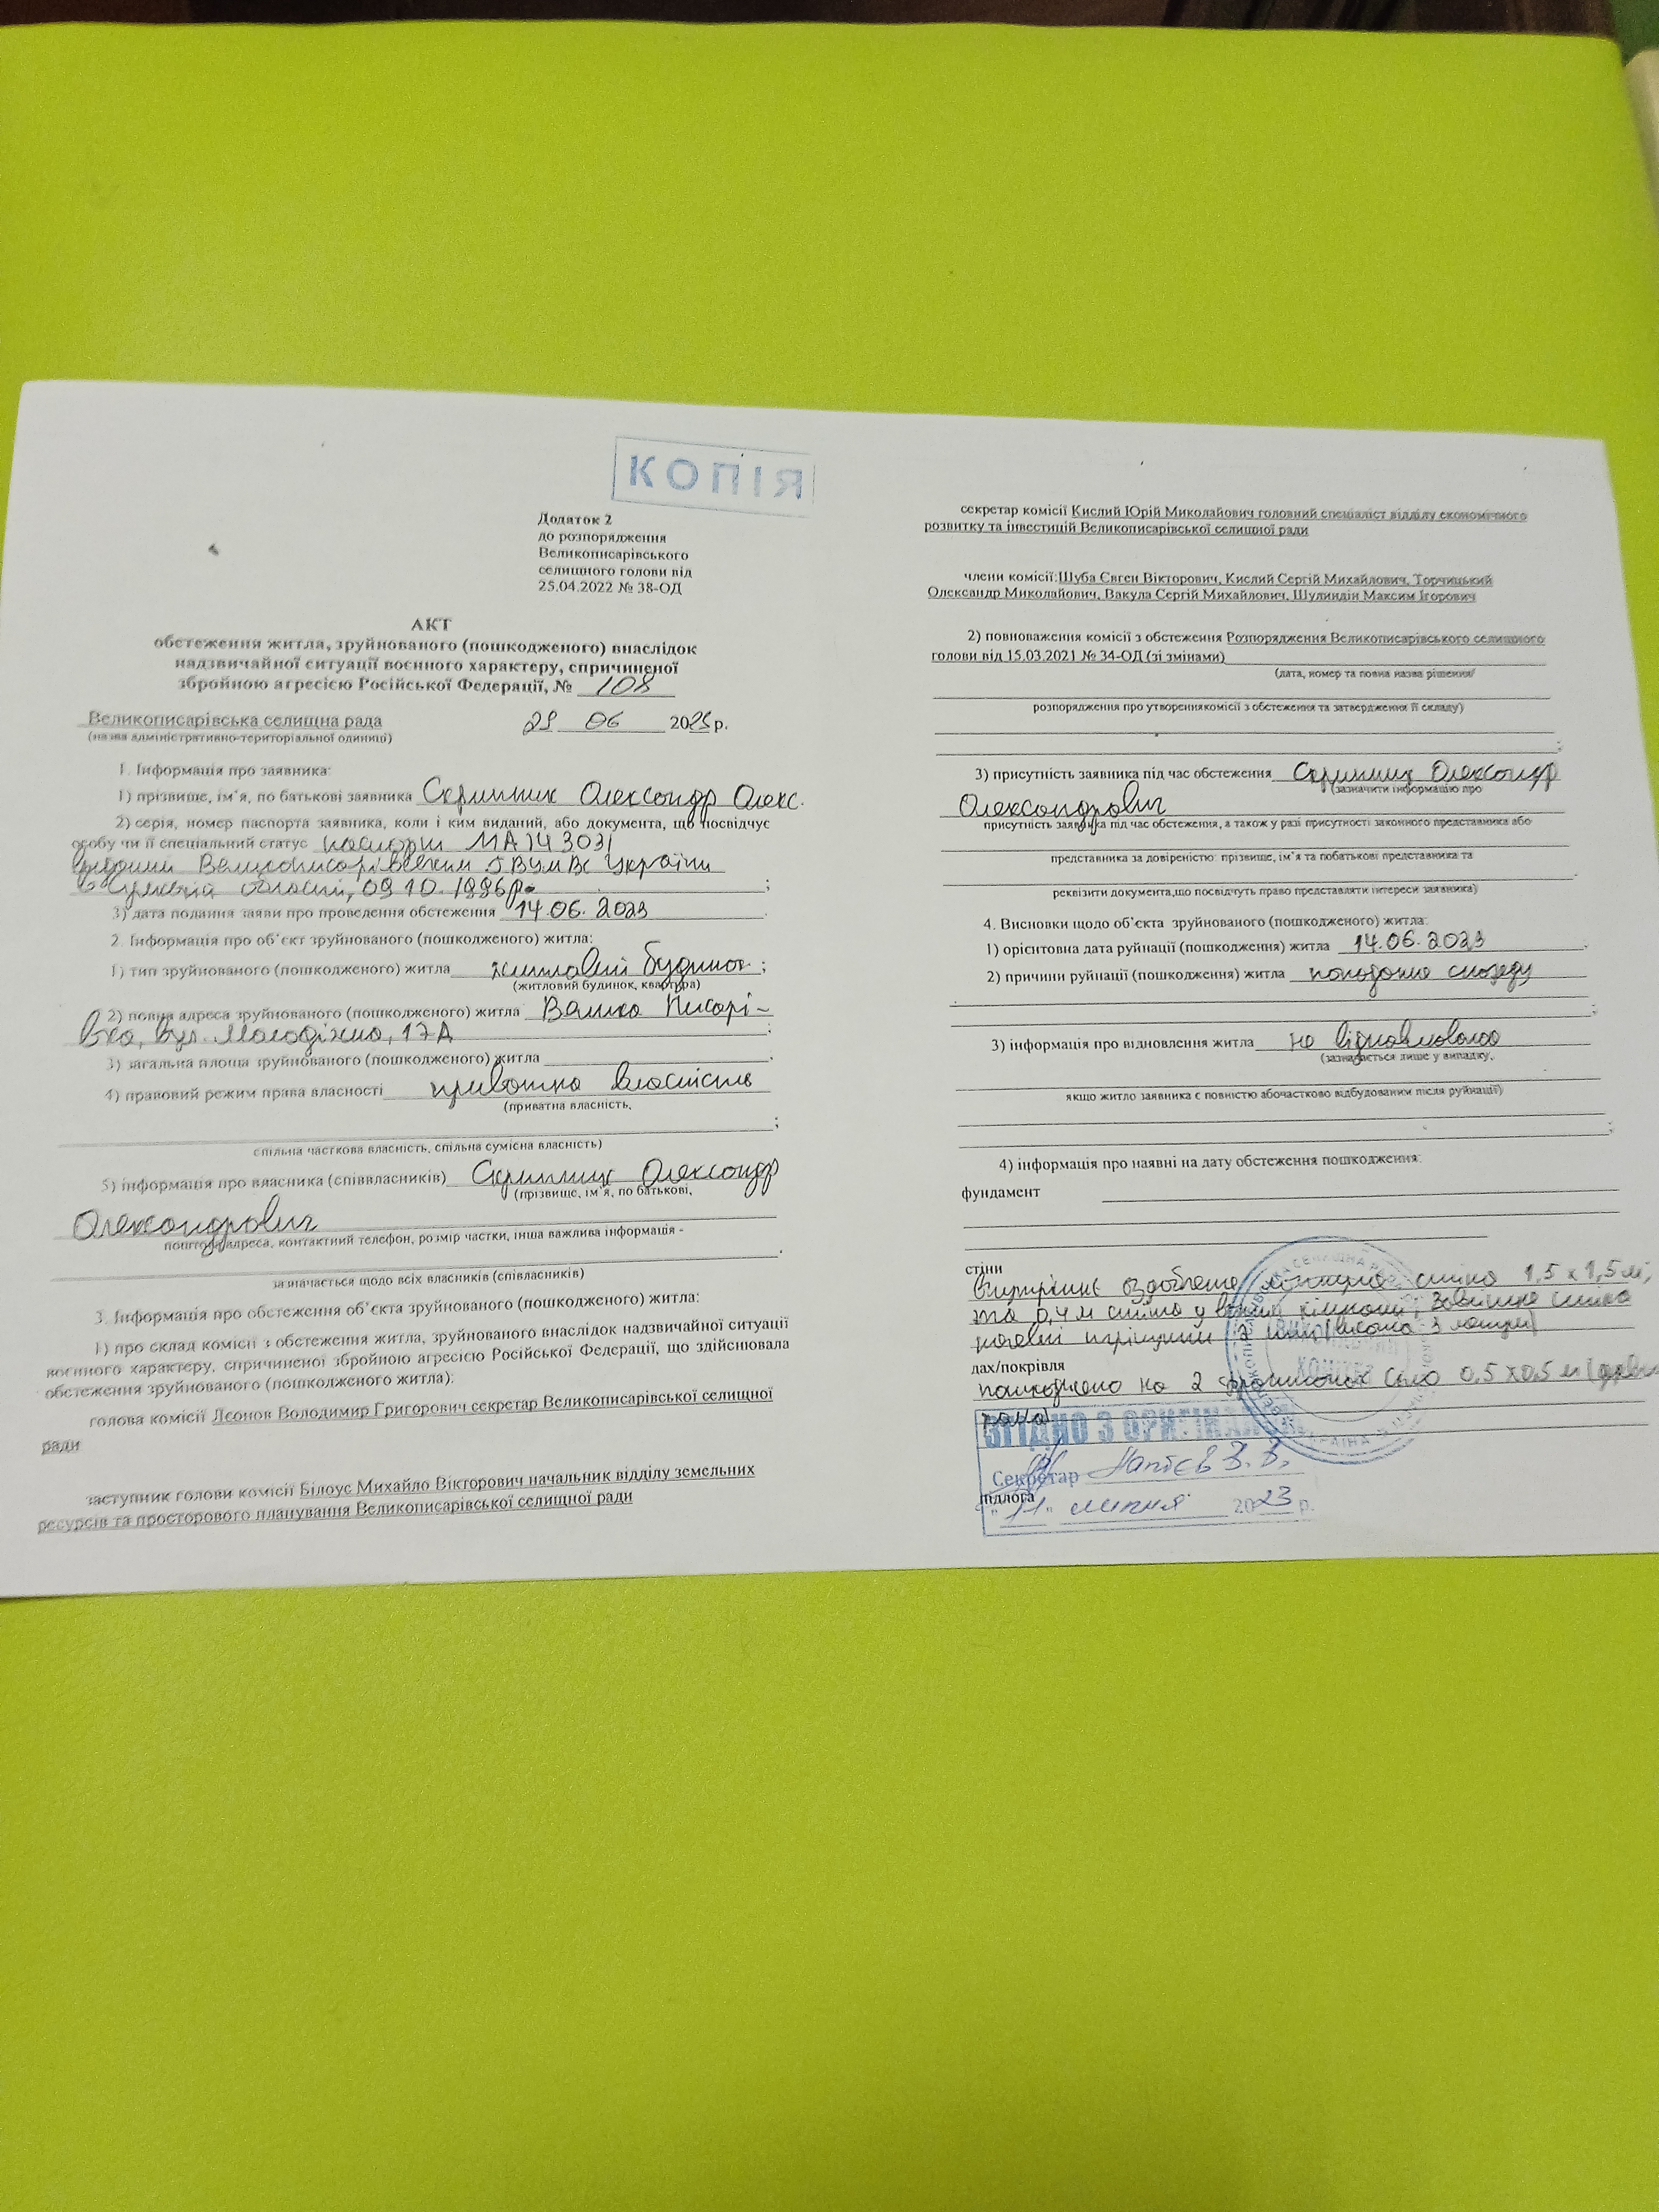 КОПІЯ
Додаток 2
до розпорядження
Великописарівського
селищного голови від
25.04.2022 № 38-ОД
АКТ
обстеження житла, зруйнованого (пошкодженого) внаслідок
надзвичайної ситуації воєнного характеру, спричиненої
збройною агресією Російської Федерації, № 108
Великописарівська селищна рада 06 20 р.
(назва адміністративно-територіальної одиниці)
1. Інформація про заявника:
1) прізвище, ім’я, по батькові заявника Скрипник Олександр Олекс.
2) серія, номер паспорта заявника, коли і ким виданий, або документа, що посвідчує
особу чи її спеціальний статус паспорт МА 143031
виданий Великописарівським УМВС України
в Сумській області, 09.10.1996р.
3) дата подання заяви про проведення обстеження 14.06.2023
2. Інформація про об’єкт зруйнованого (пошкодженого) житла:
1) тип зруйнованого (пошкодженого) житла житловий будинок ;
(житловий будинок, квартира)
2) повна адреса зруйнованого (пошкодженого) житла Велика Писарі-
вка, вул. Молодіжна, 17А ;
3) загальна площа зруйнованого (пошкодженого) житла ;
4) правовий режим права власності приватна власність
(приватна власність,
;
спільна часткова власність, спільна сумісна власність)
5) інформація про власника (співвласників) Скрипник Олександр
(прізвище, ім’я, по батькові,
Олександрович
поштова адреса, контактний телефон, розмір частки, інша важлива інформація -
.
зазначається щодо всіх власників (співласників)
3. Інформація про обстеження об’єкта зруйнованого (пошкодженого) житла:
1) про склад комісії з обстеження житла, зруйнованого внаслідок надзвичайної ситуації
воєнного характеру, спричиненої збройною агресією Російської Федерації, що здійснювала
обстеження зруйнованого (пошкодженого житла):
голова комісії Леонов Володимир Григорович секретар Великописарівської селищної
ради
заступник голови комісії Білоус Михайло Вікторович начальник відділу земельних
ресурсів та просторового планування Великописарівської селищної ради
секретар комісії Кислий Юрій Миколайович головний спеціаліст відділу економічного
розвитку та інвестицій Великописарівської селищної ради
члени комісії:Шуба Євген Вікторович, Кислий Сергій Михайлович, Торчицький
Олександр Миколайович, Вакула Сергій Михайлович, Шулиндін Максим Ігорович
2) повноваження комісії з обстеження Розпорядження Великописарівського селищного
голови від 15.03.2021 № 34-ОД (зі змінами)
(дата, номер та повна назва рішення/
розпорядження про утвореннякомісії з обстеження та затвердження її складу)
;
3) присутність заявника під час обстеження Скрипник Олександр
(зазначити інформацію про
Олександрович
присутність заявника під час обстеження, а також у разі присутності законного представника або
представника за довіреністю: прізвище, ім’я та побатькові представника та
.
реквізити документа,що посвідчуть право представляти інтереси заявника)
4. Висновки щодо об’єкта зруйнованого (пошкодженого) житла:
1) орієнтовна дата руйнації (пошкодження) житла 14.06.2023 .
2) причини руйнації (пошкодження) житла попадання снаряду
;
3) інформація про відновлення житла не відновлювалось
(зазначається лише у випадку,
якщо житло заявника є повністю абочастково відбудованим після руйнації)
;
4) інформація про наявні на дату обстеження пошкодження:
фундамент
стіни
Внутрішнє оздоблення стіна 1,5 х 1,5 м;
та 0,4 м стіна у кімнаті, Зовнішня стіна
тріщини
дах/покрівля
пошкоджено на 2 0,5 х 0,5 м
ЗГІДНО З ОРИГІНАЛОМ
Секретар
підлога
"11" липня 2023 р.